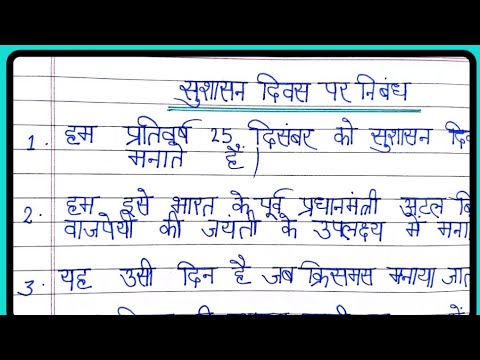 सुशासन दिवस पर निबंध
1. हम प्रतिवर्ष 25 दिसंबर को सुशासन
मनाते हैं।
2. हम इसे भारत के पूर्व प्रधानमंत्री अटल
वाजपेयी की जयंती के उपलक्ष्य में
3. यह उसी दिन है जब क्रिसमस मनाया